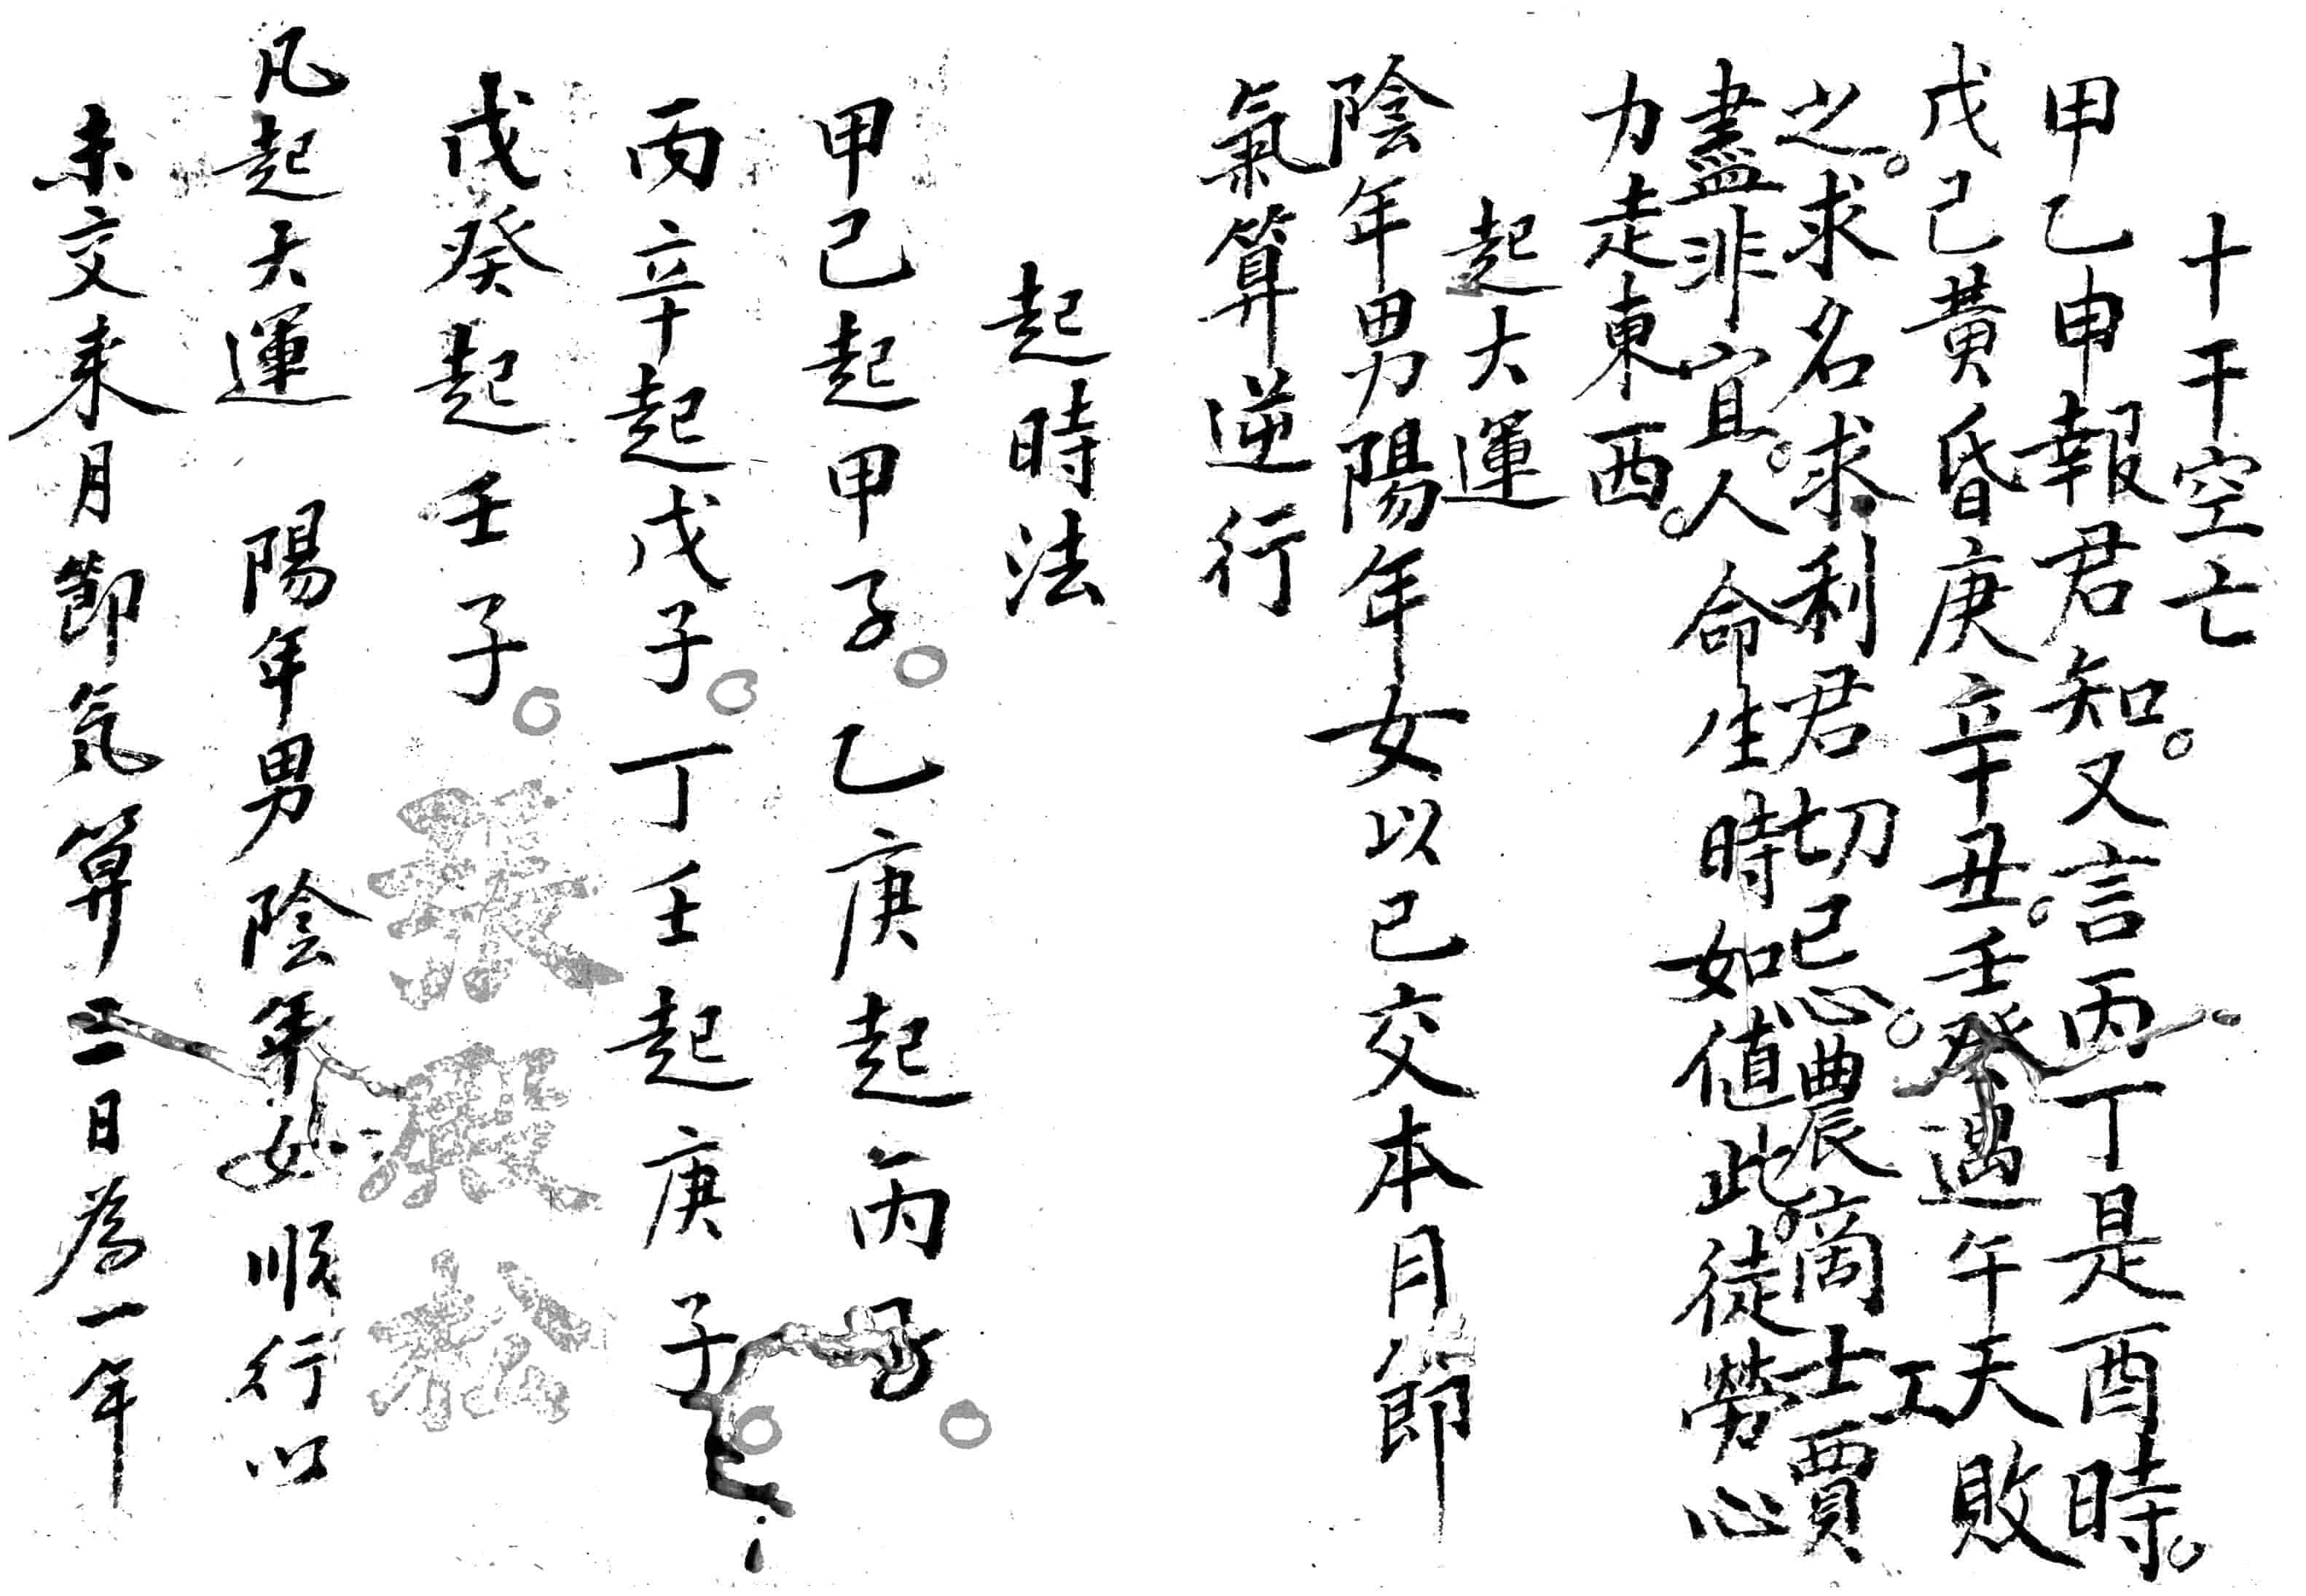 十干空亡
甲乙申報君知。又言丙丁是酉時。
戊己黄昏庚辛丑。壬癸過午天敗
之。求名求利君切已心。農商士賈工
盡非宜。人命生時如值此。徒勞心
力走東西。
起大運
陰年男陽年女以已交本月節
氣算逆行
起時法
甲己起甲子。乙庚起丙子。
丙辛起戊子。丁壬起庚子。
戊癸起壬子。
凡起大運 陽年男陰年女順行以
未交来月節気算三日為一年